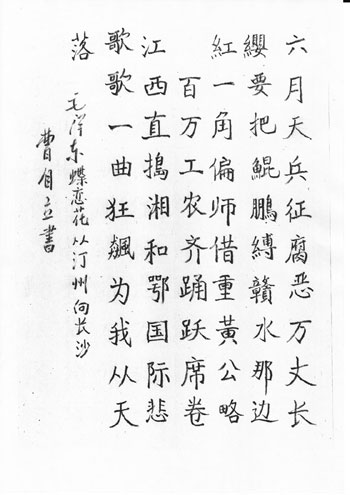 六月天兵征腐恶万丈长
纓要把鯤鵬縛贛水那边
紅一角偏师借重黃公略
百万工农齐踊跃席卷
江西直搗湘和鄂国际悲
歌歌一曲狂飆为我从天
落
毛泽东蝶恋花从汀州向长沙
曹立書